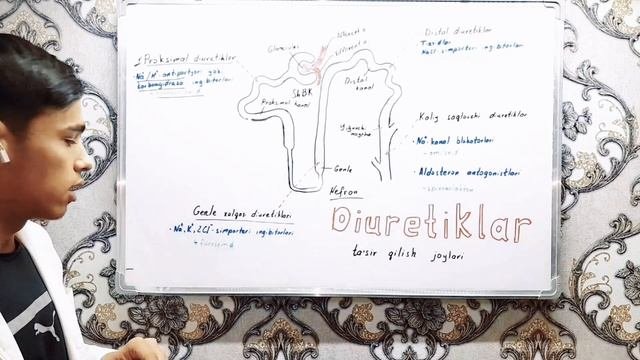 Proksimal diuretiklar
Na⁺/H⁺ antiportyor yoki
karbongidraza ingibitorlari
Glomerulus
Proksimal kanal
ShBK
Distal
kanal
Yig'uvchi
naycha
Genle
Nefron
Distal diuretiklar
Tiazidlar
NaCl simporteri ingibitorlari
Kaliy saqlovchi diuretiklar
• Na⁺ kanal blokatorlari
• Aldosteron antogonistlari
Genle xalqos diuretiklari
• Na⁺, K⁺, 2Cl⁻ simporteri ingibitorlari
Diuretiklar
ta'sir qilish joylari